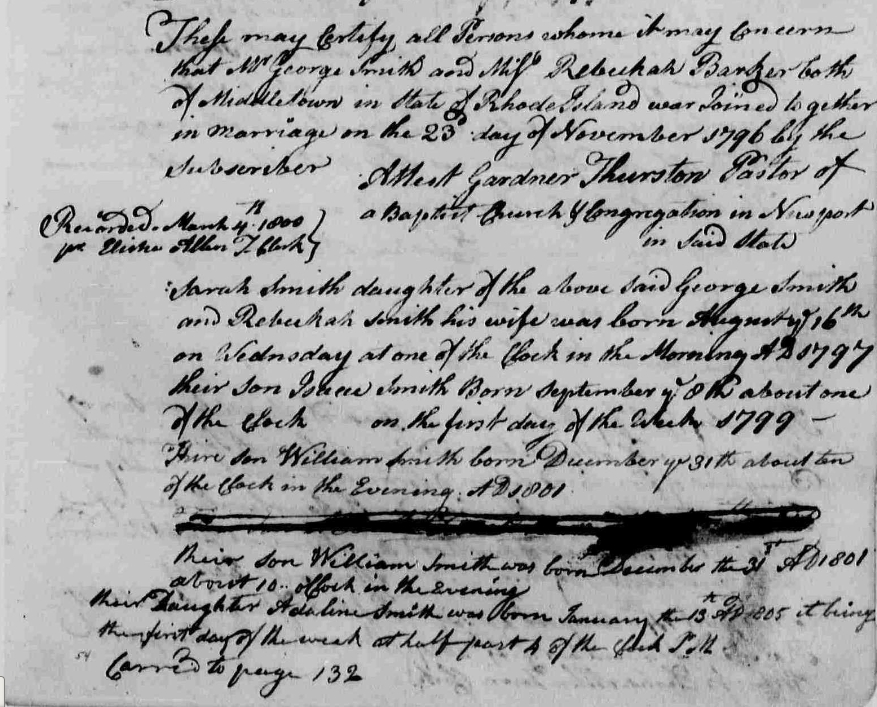 These may Certify all Persons whome it may Concern
that Mr George Smith and Miss Rebeckah Barker both
of Middletown in State of Rhode Island war Joined together
in marriage on the 23d day of November 1796 by the
Subscriber
Attest Gardner Thurston Pastor of
a Baptist Church & Congregation in Newport
in Said State
Recorded March 4th 1800
pr Elisha Allen T. Clerk
Sarah Smith daughter of the above said George Smith
and Rebeckah Smith his wife was born August ye 16th
on Wednsday at one of the Clock in the Morning AD 1797
their son Isaac Smith Born September ye 8th about one
of the Clock on the first day of the Week 1799 –
Thire son William Smith born December ye 31th about ten
of the Clock in the Evening AD 1801
their son William Smith was born December the 31st AD 1801
about 10 oClock in the Evening
their Daughter Adaline Smith was born January the 13th AD 1805 it being
the first day of the week at half past 4 of the Clock P.M.
Carred to page 132